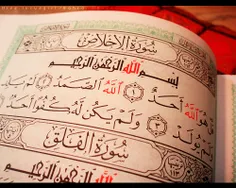 سُورَةُ الإِخْلَاصِ
بِسْمِ اللَّهِ الرَّحْمَٰنِ الرَّحِيمِ
قُلْ هُوَ اللَّهُ أَحَدٌ ۝١ اللَّهُ الصَّمَدُ ۝٢ لَمْ يَلِدْ
وَلَمْ يُولَدْ ۝٣ وَلَمْ يَكُن لَّهُ كُفُوًا أَحَدٌ
سُورَةُ الْفَلَقِ
بِسْمِ اللَّهِ الرَّحْمَٰنِ الرَّحِيمِ